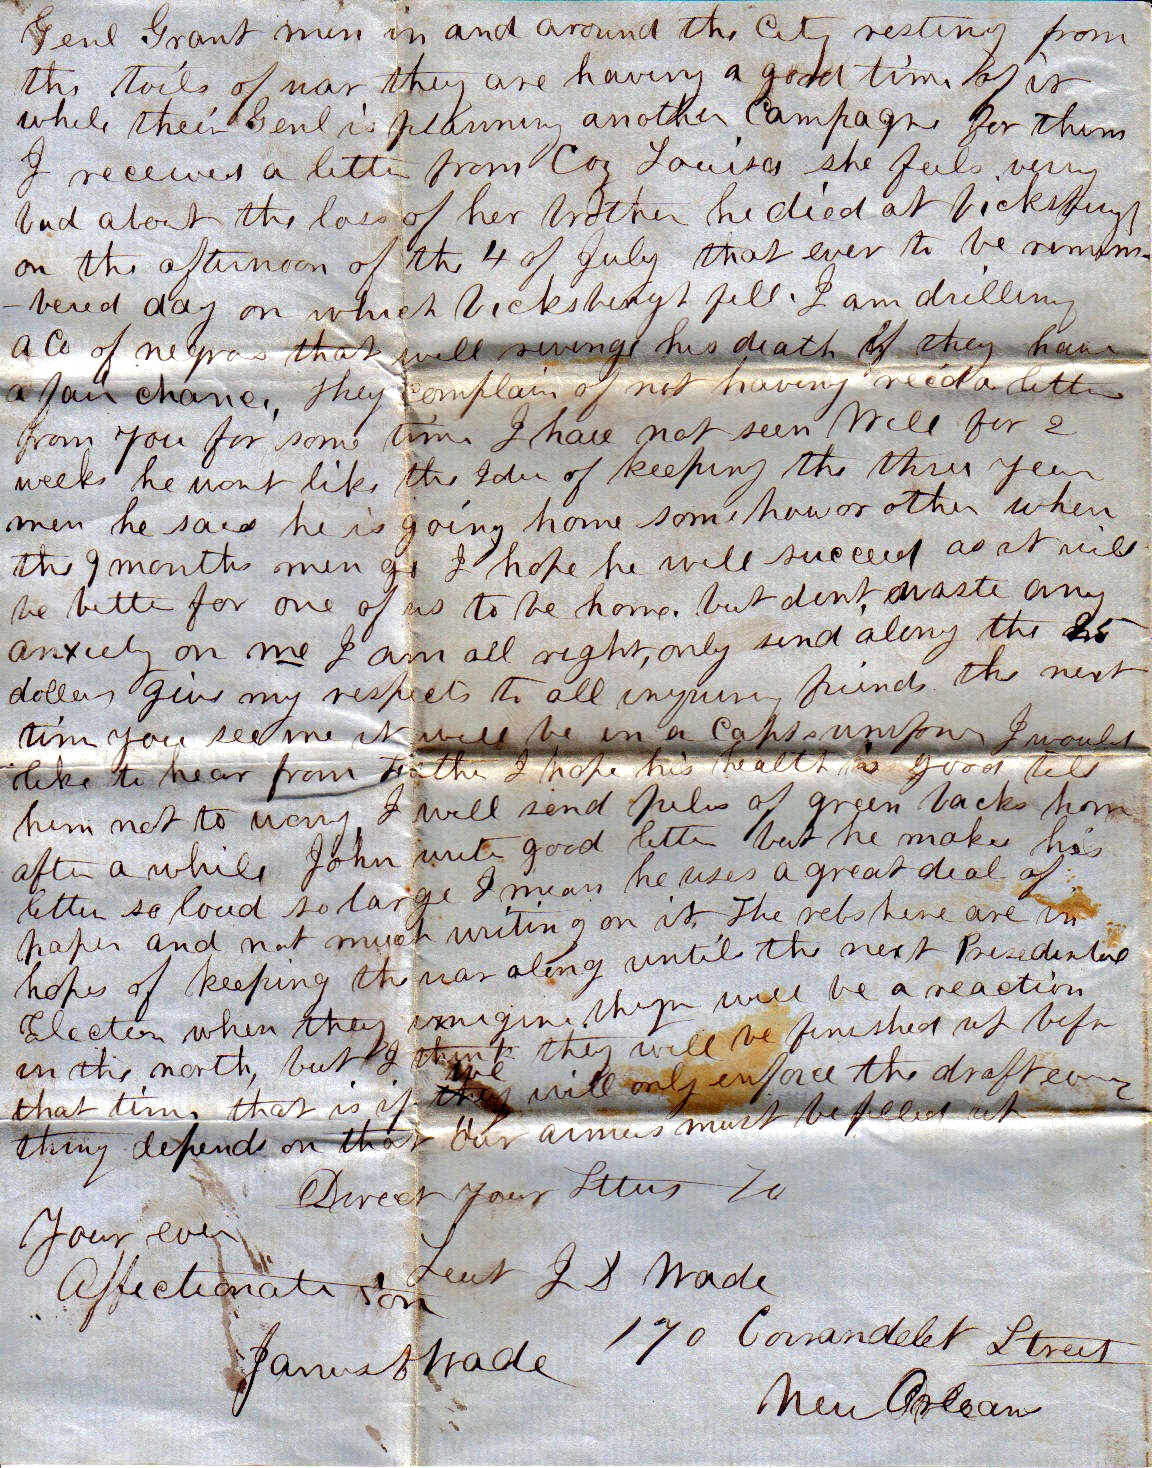 Genl Grant men in and around the City resting from
the toils of war they are having a good time of it
while their Genl is planning another Campagne for them
I received a letter from Coz Louisa she feels very
bad about the loss of her brother he died at Vicksburgh
on the afternoon of the 4 of July that ever to be remem-
-bered day on which Vicksburgh fell. I am drilling
a Co of negros that will revenge his death if they have
a fair chance, They complain of not having rec'd a letter
from you for some time I have not seen Will for 2
weeks he wont like the Idea of keeping the three year
men he said he is going home some how or other when
the 9 months men go I hope he will succeed as it will
be better for one of us to be home. but dont waste any
anxiety on me I am all right, only send along the 25
dollars give my respects to all inquiring friends the next
time you see me it will be in a Capts uniform I would
like to hear from Father I hope his health is good tell
him not to worry, I will send piles of green backs home
after a while John write good letter but he makes his
letter so loud so large I mean he uses a great deal of
paper and not much writing on it. The rebs here are in
hopes of keeping the war along until the next Presedential
Election when they imagine there will be a reaction
in the north, but I think they will be finished up before
that time, that is if we will only enforce the draft every
thing depends on that Our armies must be filled up
Direct your Letters To
Your ever
Affectionate son
Leut J S Wade
James S Wade
170 Carrandelet Street
New Orleans